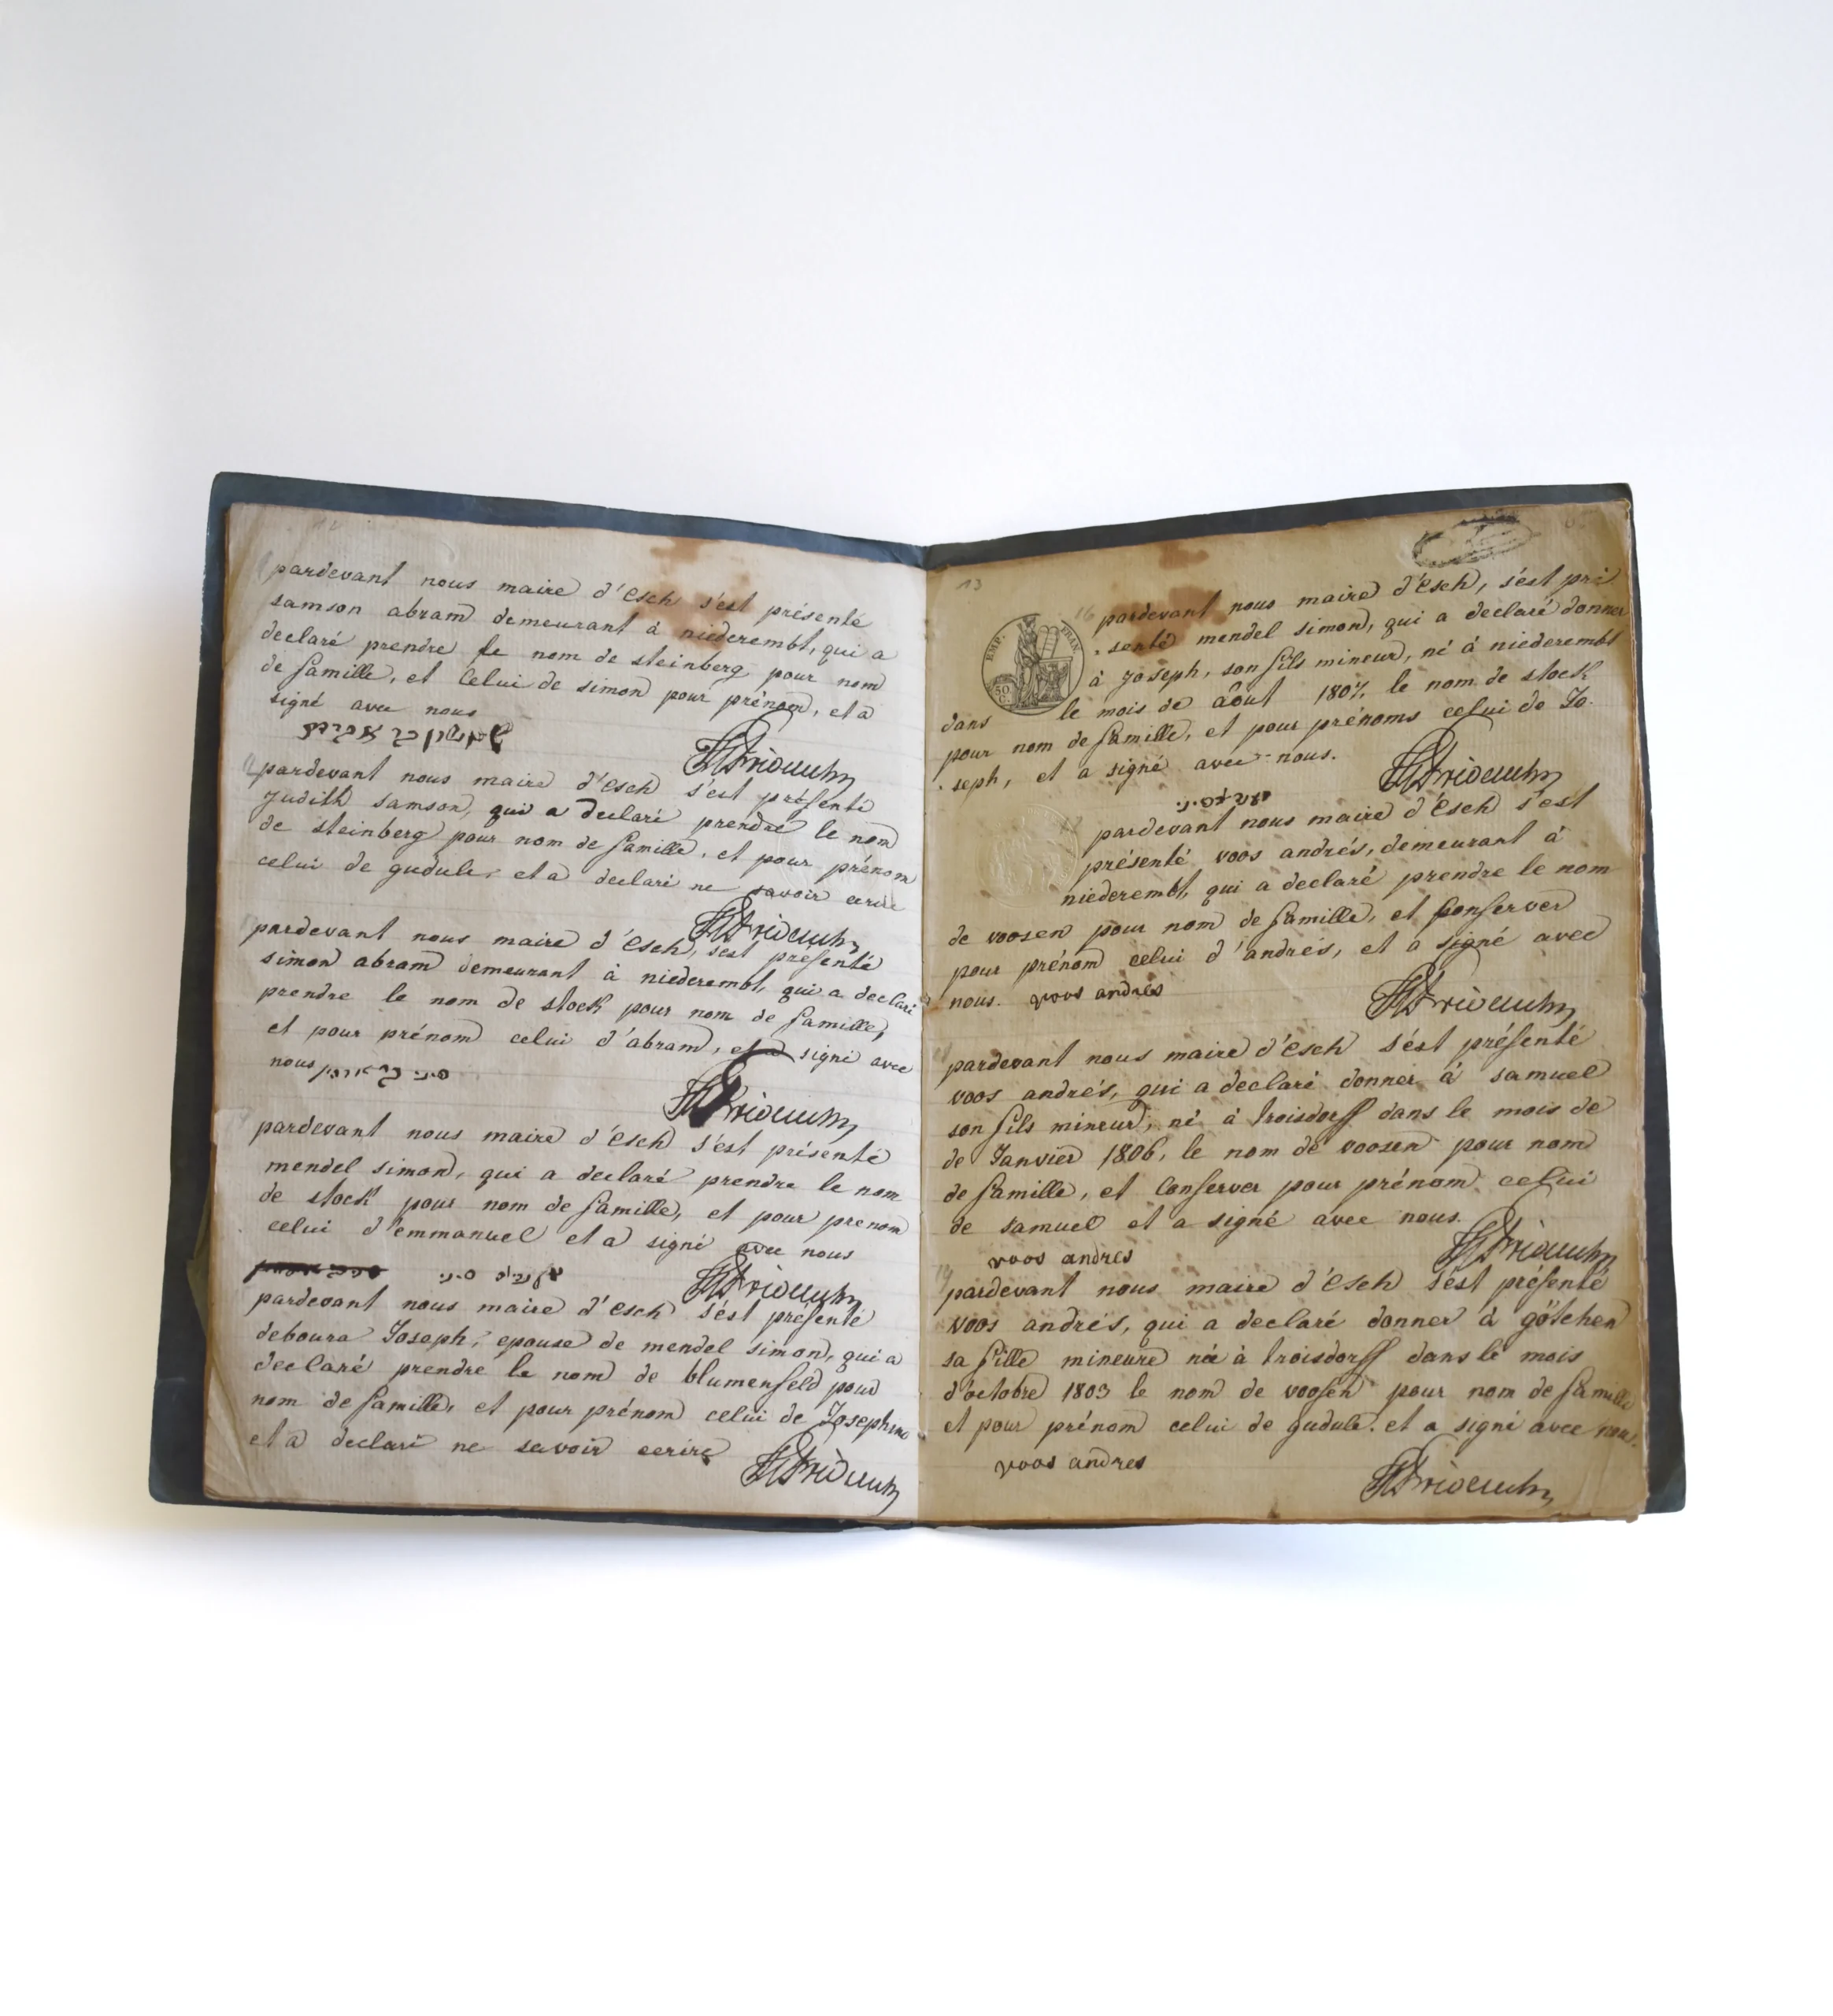 pardevant nous maire d'Esch s'est présenté
samson abram demeurant à niederembt, qui a
declaré prendre le nom de steinberg pour nom
de famille, et celui de simon pour prénom, et a
signé avec nous
pardevant nous maire d'Esch s'est présenté
Judith samson, qui a declaré prendre le nom
de steinberg pour nom de famille, et pour prénom
celui de gudule et a declaré ne savoir ecrire
pardevant nous maire d'Esch, s'est présenté
simon abram demeurant à niederembt, qui a declaré
prendre le nom de stock pour nom de famille,
et pour prénom celui d'abram, et a signé avec
nous
pardevant nous maire d'Esch s'est présenté
mendel simon, qui a declaré prendre le nom
de stock pour nom de famille, et pour prenom
celui d'emmanuel et a signé avec nous
pardevant nous maire d'Esch s'est présenté
deboura Joseph, epouse de mendel simon, qui a
declaré prendre le nom de blumenfeld pour
nom de famille, et pour prénom celui de Josephine
et a declaré ne savoir ecrire
13
16
EMP. FRAN
50 C.
pardevant nous maire d'Esch, s'est pré
senté mendel simon, qui a declaré donner
à Joseph, son fils mineur, né à niederembt
dans le mois de Aôut 1807, le nom de stock
pour nom de famille, et pour prénoms celui de Jo.
seph, et a signé avec nous.
pardevant nous maire d'Esch s'est
présenté voos andrés, demeurant à
niederembt, qui a declaré prendre le nom
de voosen pour nom de famille, et conserver
pour prénom celui d'andrés, et a signé avec
nous. voos andres
pardevant nous maire d'Esch s'ést présenté
voos andrés, qui a declaré donner à samuel
son fils mineur, né à troisdorff dans le mois de
de Janvier 1806, le nom de voosen pour nom
de famille, et conserver pour prénom celui
de samuel et a signé avec nous.
voos andres
pardevant nous maire d'Esch s'ést présenté
voos andrés, qui a declaré donner à götchen
sa fille mineure née à troisdorff dans le mois
d'octobre 1803 le nom de voosen pour nom de famille
et pour prénom celui de gudule. et a signé avec nous.
voos andres